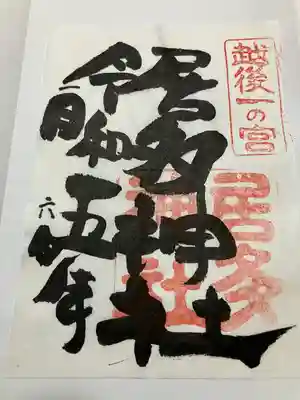 越後一の宮
居多神社
居多神社
令和五年
二月
六日